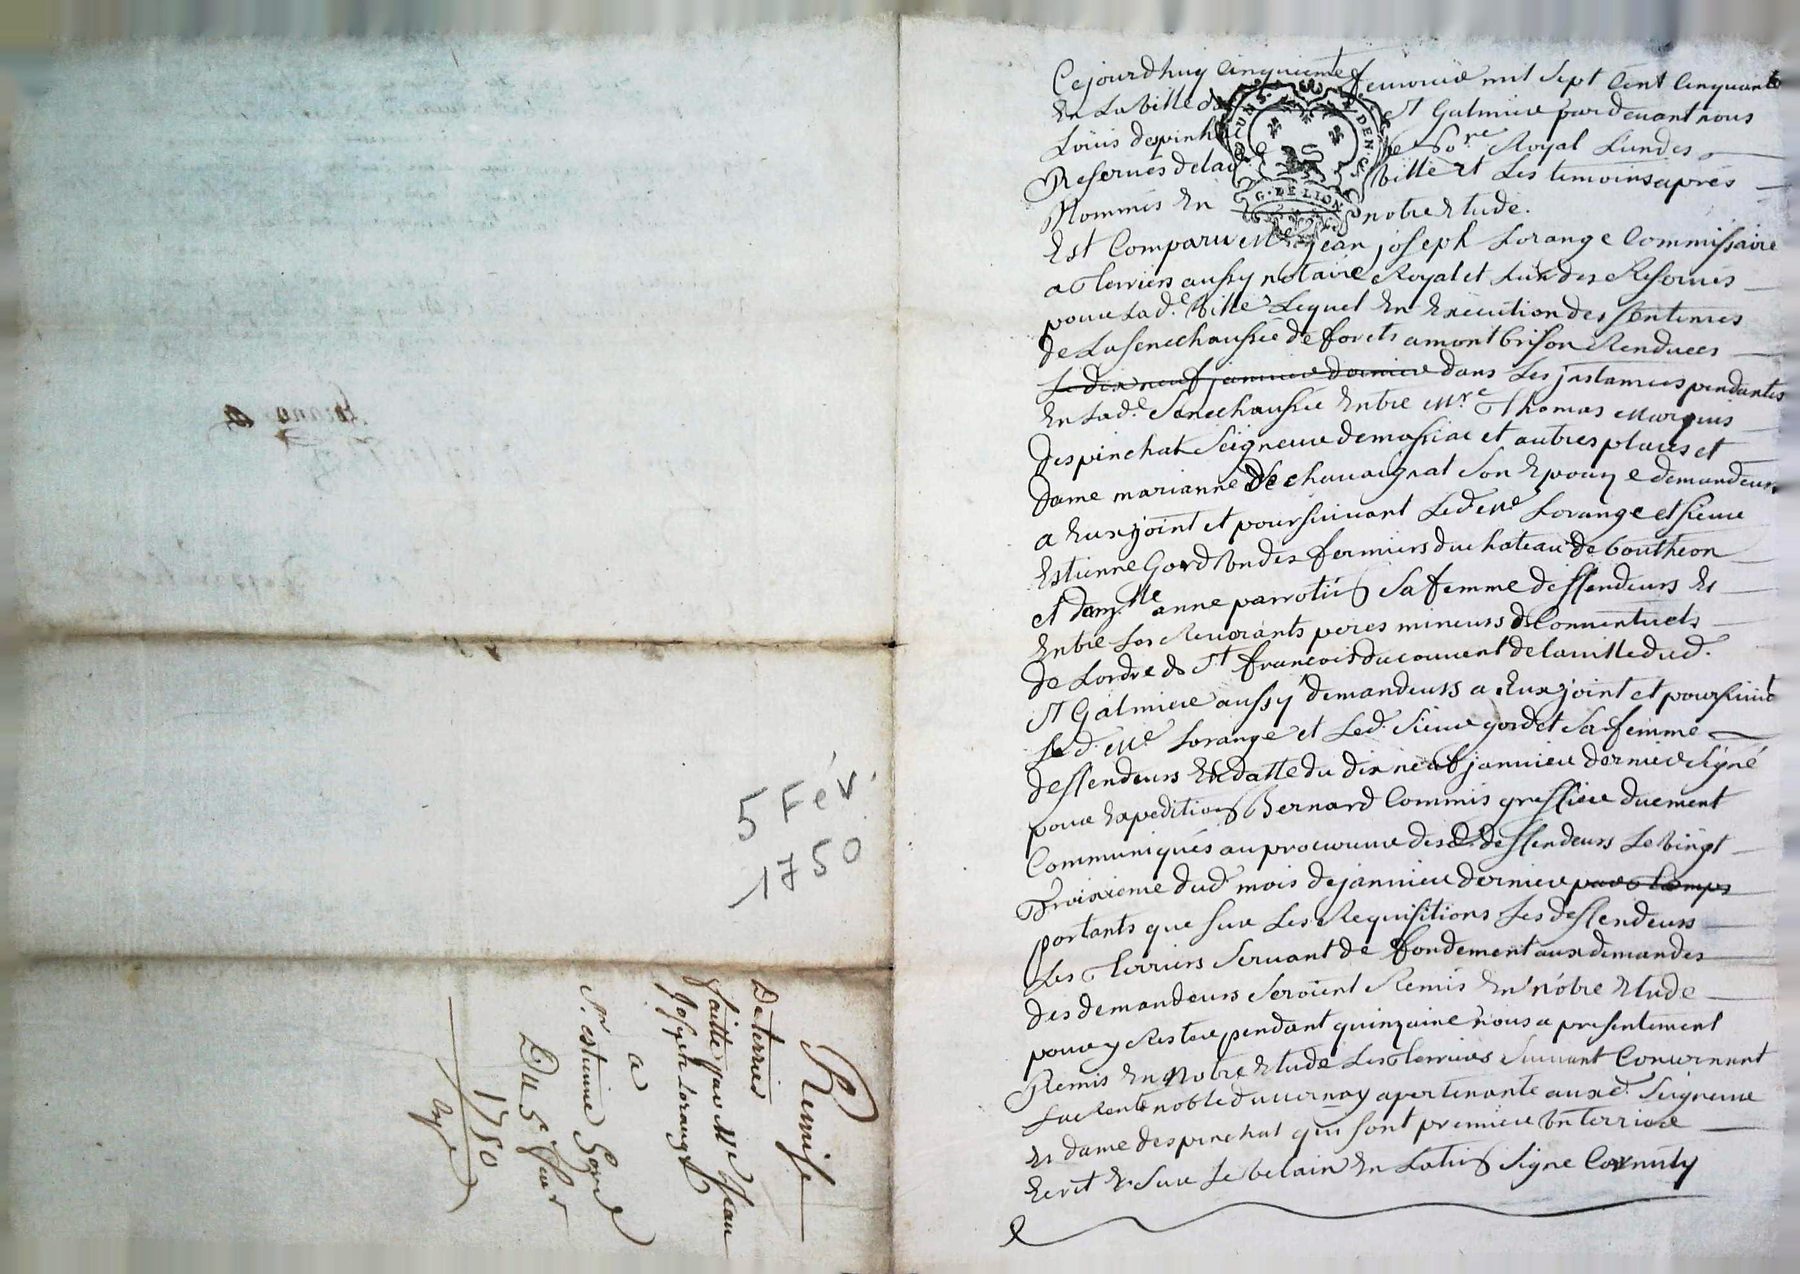 Cejourdhuy Cinquieme feuvrier mil sept Cent Cinquante
En La Ville de St Galmier pardevant nous
Loüis depinhac No.re Royal Lundes
Reservés de lad. Ville et Les temoins après
Nommés En notre Etude.
Est Comparu Me jean joseph Lorange Commissaire
a Terriers aussy notaire Royal et Lundes Reservés
pour Lad.e Ville Lequel En Execution des sentences
de La senechaussée de forets a montbrison Rendues
Le dix neuf janvier dernier dans Les jnstances pendantes
En Lad.e Senechaussée Entre Mre Thomas Marquis
Despinchat Seigneur demassiac et autres places et
Dame marianne De chavaignat Son Epouze demandeurs
a Eux joint et poursuivant Led. Me Lorange et sieur
Estienne Gord Un des fermiers du chateau de boutheon
et damlle anne parrotin Sa femme deffendeurs Et
Entre Les Reverants peres mineurs Conventuels
de Lordre de St francois du couvent de la ville dud.
St Galmier aussy demandeurs a Eux joint et poursuivt
Led. Me Lorange et Led. Sieur gord et Sa femme
deffendeurs En datte du dix neuf janvier dernier signé
pour Expedition Bernard Commis greffier duement
Communiqués au procureur desd. deffendeurs Le Vingt
Troisieme dud. mois de janvier dernier
portants que sur Les Requisitions des deffendeurs
Les Terriers Servant de fondement aux demandes
des demandeurs Seroient Remis En nôtre Etude
pour y Rester pendant quinzaine nous a presentement
Remis En Notre Etude Les Terriers Suivant Concernant
La Rente noble du vernay apertenante auxd. Seigneur
Et dame despinchat qui sont premier Un terrier
Ecrit Sur Le velain En Latin Signé Cornuty
G. DE LION
5 Fév.
1750
Remise
De terriers
faitte par Me Jean
Joseph Lorange
a
Sr. estienne Gord
Du 5e fevr
1750